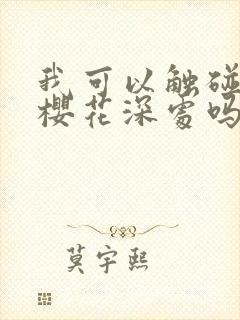 我可以触碰
樱花深处吗
莫宇熙